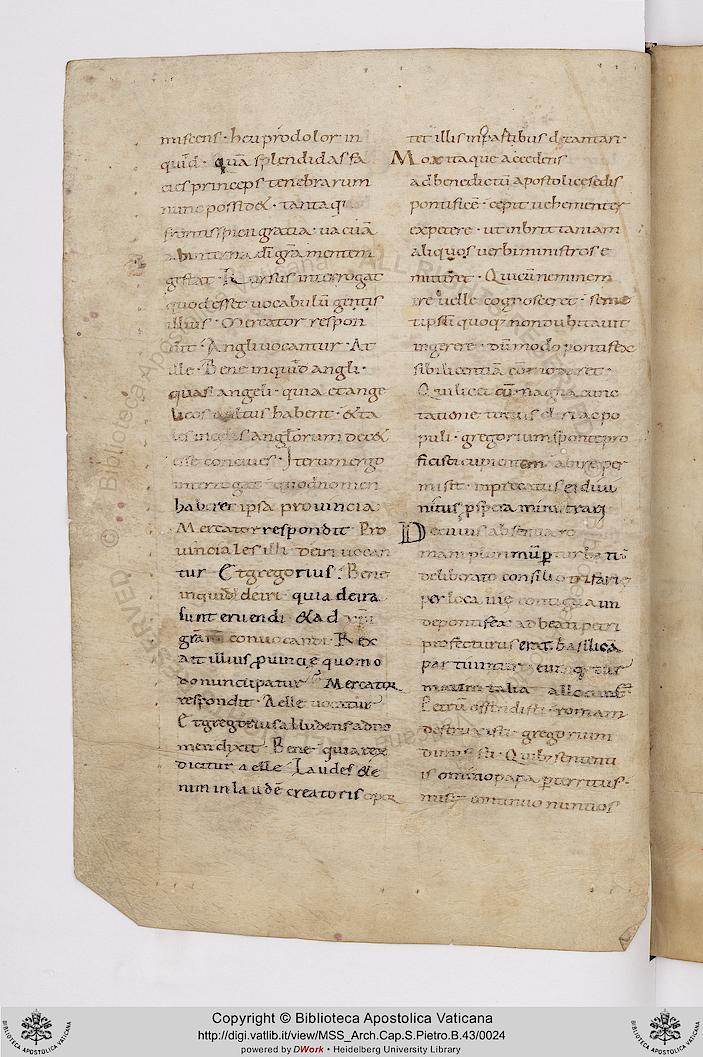 miscens · heu prodolor in
quid · quā splendidas fa
cies princeps tenebrarum
nunc possidet · tanta q;
frontispicii gratia · uacuā
ab interna dī grā mentem
gestat · Rursus interrogat
quod esset uocabulū gentis
illius · Mercator respon
dit · Angli uocantur · At
ille · Bene inquid angli ·
quasi angeli · quia et ange
licos uultus habent · & ta
les in celis anglorum decet
esse conciues · Iterum ergo
interrogat · quod nomen
haberet ipsa prouincia
Mercator respondit Pro
uinciales illi deiri uocan
tur Et gregorius · Bene
inquid deiri quia de ira
sunt eruendi & ad xp̄i
grām conuocandi Rex
ait illius ꝓuincię quomo
do nuncupatur Mercator
respondit · Aelle uocatur
Et gregorius alludens ad no
men dixit · Bene quia rex
dicitur aelle · Laudes & e
nim in laudē creatoris opor
tet illis in partibus decantari ·
Mox itaque accedens
ad benedictū apostolice sedis
pontificē · cepit uehementer
expetere · ut in brittaniam
aliquos uerbi ministros e
mitteret · Qui cū neminem
ire uelle cognosceret · seme
tipsū quoq; non dubitauit
ingerere · dū modo pontifex
sibi licentiā
Qui licet cū magna cunc
tatione totius cleri ac po
puli · gregorium sponte pro
ficisci cupientem abire per
misit · inprecatus ei diui
nitus ꝓspera ministrari
De cuius absentia ro
mani plurimūm ꝑturbati
deliberato consilio trifarie
per loca uie contigua un
de pontifex ad beati petri
profecturus erat basilicā
partiuntur · eumq;
talia
Petrū offendisti · romam
destruxisti · gregorium
dimisisti · Quib; sententi
is omnino papa ꝑterritus ·
misit continuo nuntios
Copyright © Biblioteca Apostolica Vaticana
http://digi.vatlib.it/view/MSS_Arch.Cap.S.Pietro.B.43/0024
powered by DWork • Heidelberg University Library
BIBLIOTECA APOSTOLICA VATICANA
BIBLIOTECA APOSTOLICA VATICANA